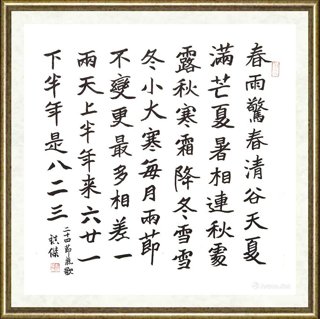 春雨驚春清谷天夏
滿芒夏暑相連秋處
露秋寒霜降冬雪雪
冬小大寒每月兩節
不變更最多相差一
兩天上半年来六廿一
下半年是八二三
二十四節氣歌